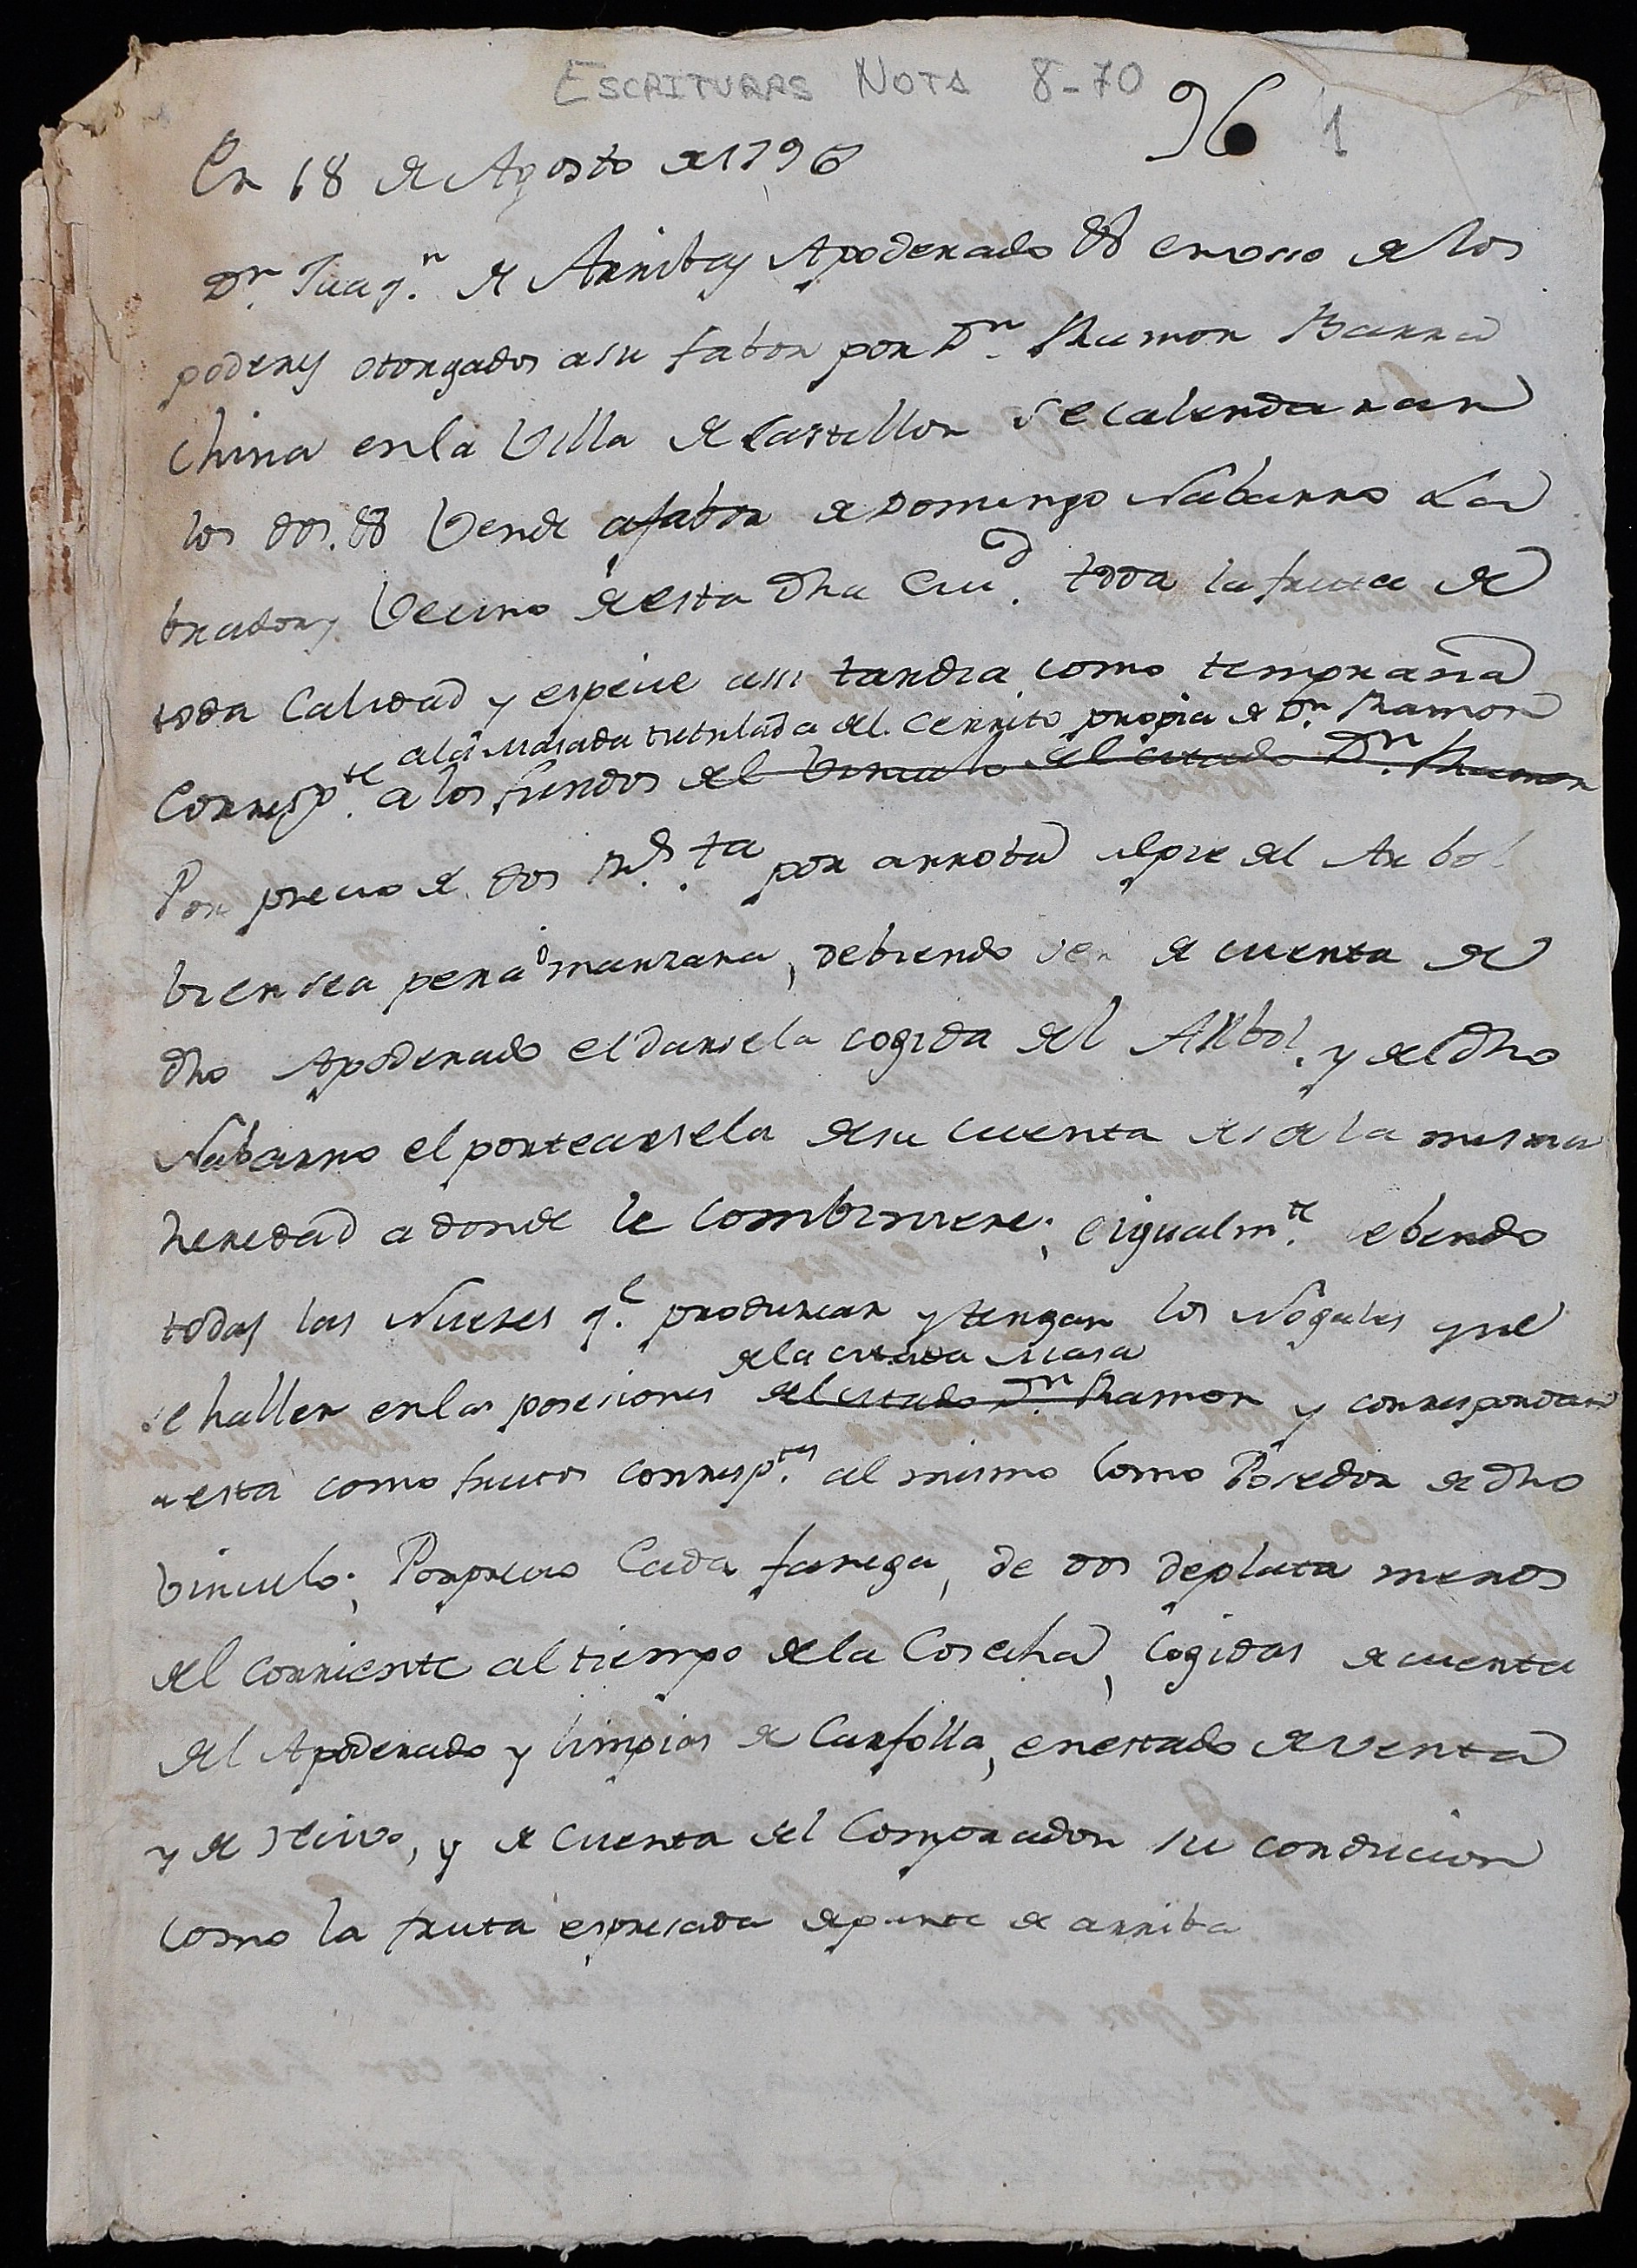 ESCRITURAS NOTA 8-70
96 1
En 18 de Agosto de 1796
Dn. Juaqn. de Arribay Apoderado en voso de los
poderes otorgados a su fabor por Dn. Rramon Barra
china en la Villa de Castellon se calendaran
los dos. Vende a fabor de Domingo Nabarro La
brador, Vecino de esta Dha Ciud. toda la fruta de
toda Calidad y espicie assi tardia como temprana
a la Masada titulada del Cerrito propia de Dn. Rramon
Corrispte. a los fundos del Vinculo del citado Dn. Rramon
Por precio de dos Rs. ta por arroba al pie del Arbol
bien sea pera o manzana, debiendo ser de cuenta de
dho Apoderado el darsela cogida del Arbol. y del Dho
Nabarro el portearsela de su cuenta desde la misma
heredad a donde le combiniere; e igualmte. le bendo
todas las Nuezes qe. produzcan y tengan los Nogales que
de la citada Masa
se hallen en las posesiones del citado Dn. Rramon y correspondan
a esta como frutos corrisptes. al mismo como Posedor de dho
binculo; Por precio Cada fanega, de dos de plata menos
del corriente al tiempo de la Cosecha, Cogidas de cuenta
del Apoderado y limpias de Carfolla, en estado de venta
y de recivo, y de cuenta del Comprador su conducion
como la fruta espresada de parte de arriba